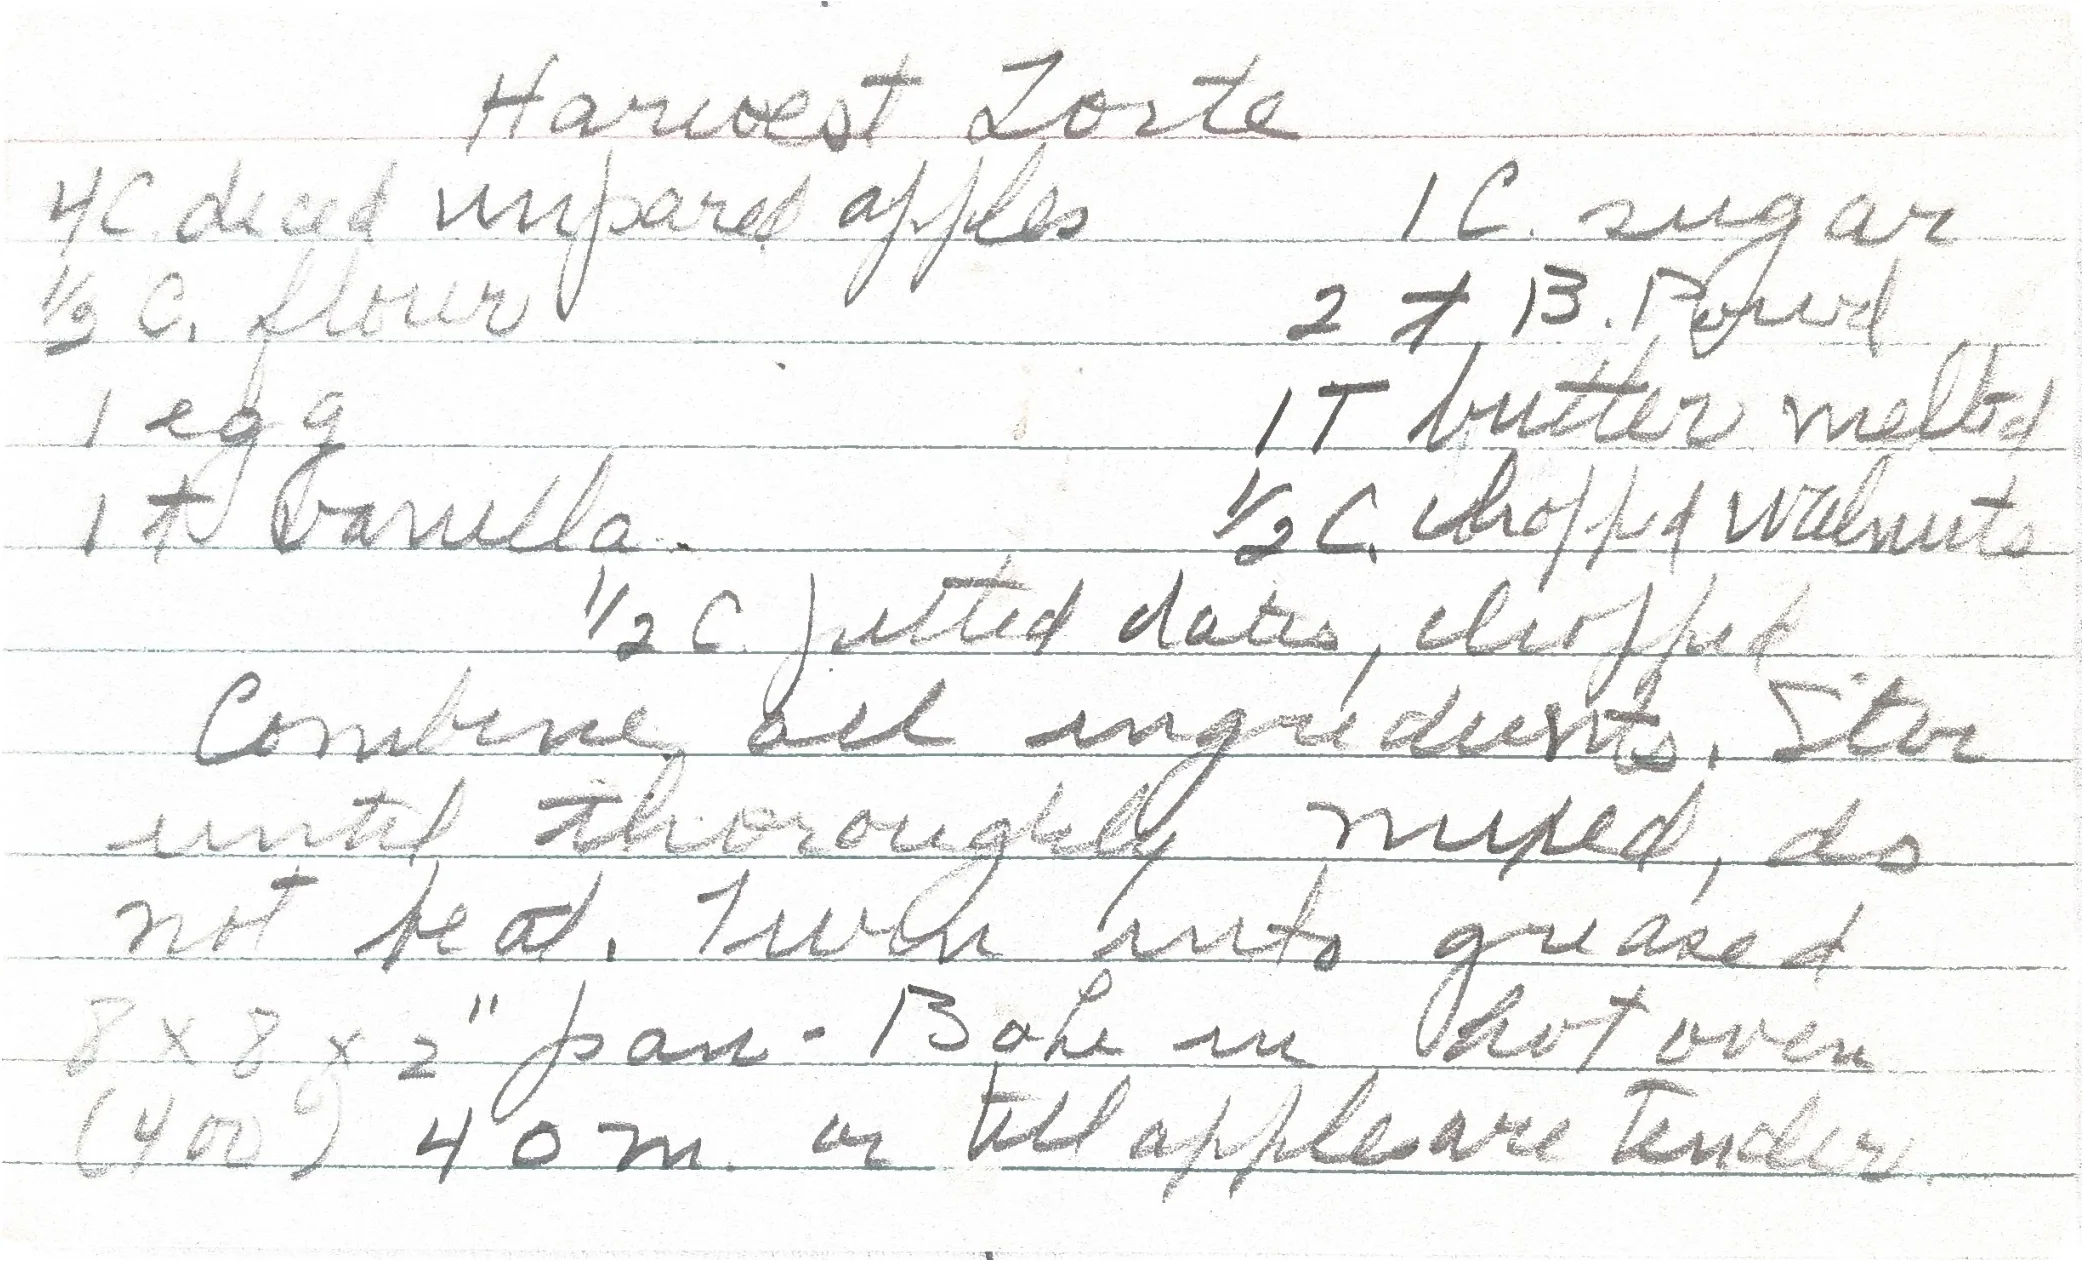 Harvest Torte
4C. diced unpared apples 1 C. sugar
1/2 C. flour 2 t B. Powd
1 egg 1 T butter melted
1 t vanilla. 1/2 C. chopped walnuts
1/2 C. pitted dates, chopped
Combine all ingredients. Stir
until thoroughly mixed, do
not beat. Turn into greased
8 x 8 x 2" pan - Bake in hot oven
(400°) 40 m. or till apples are Tender.